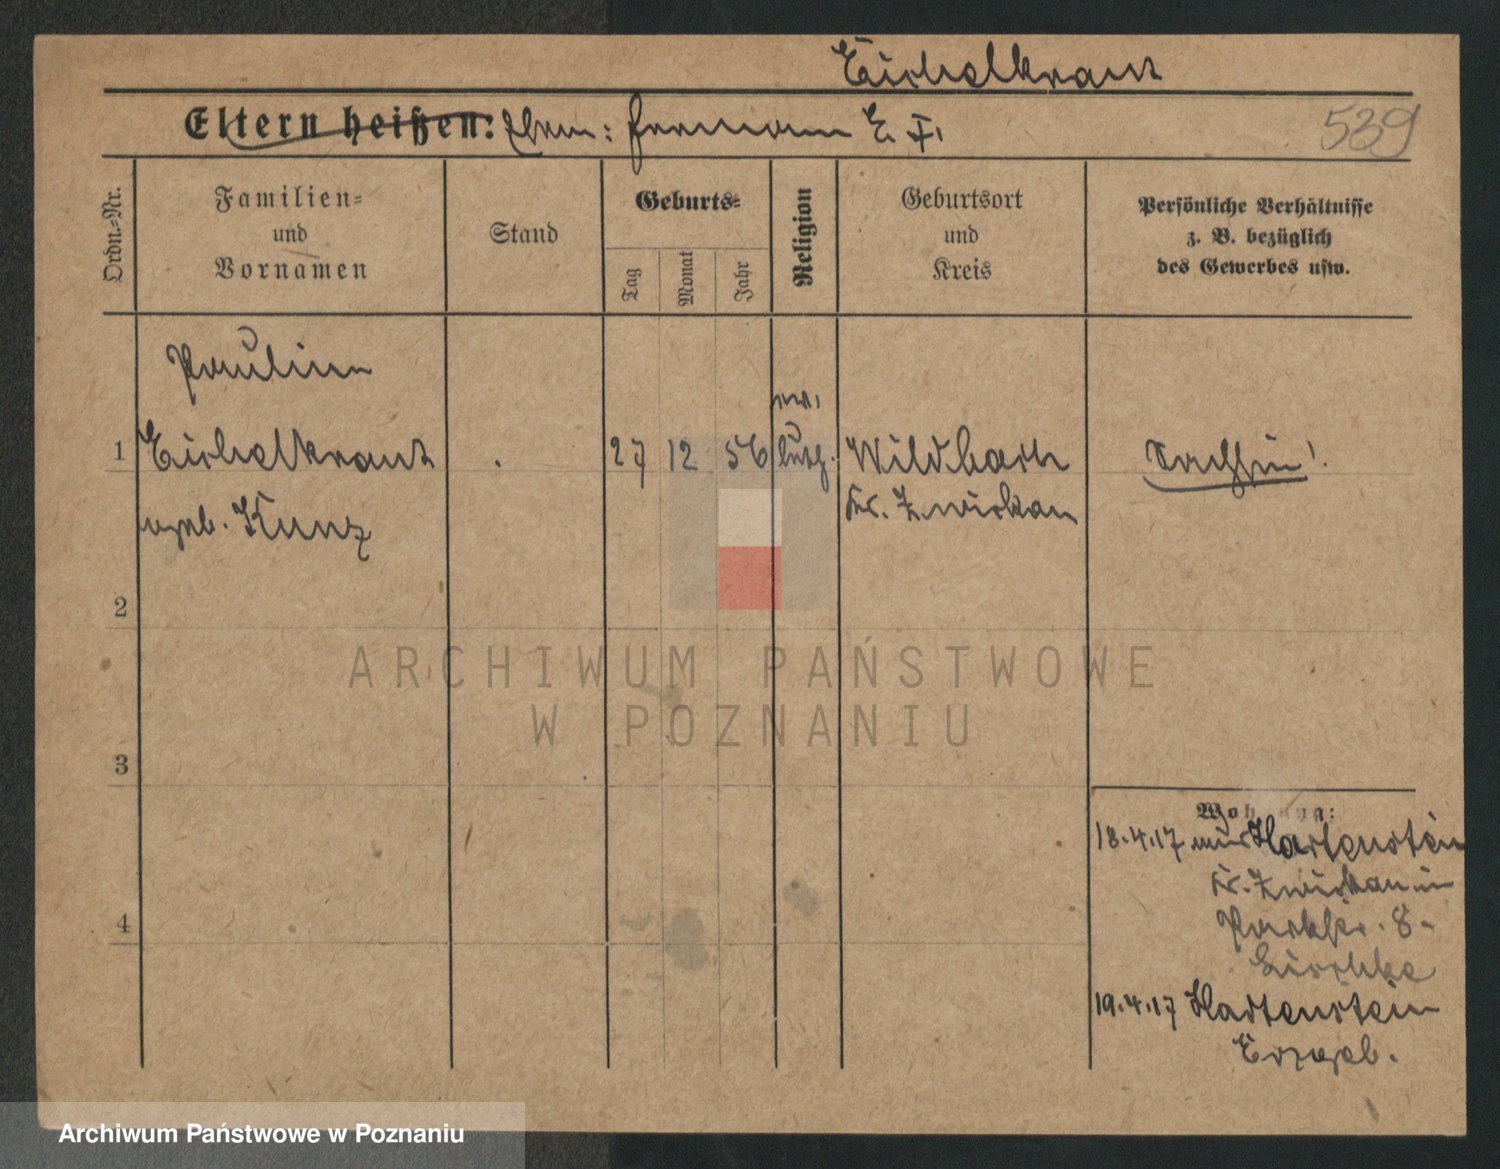 Eichelkraut
Eltern heißen: Ehem: Hermann E. †.
539
Ordn.-Nr.
Familien-
und
Vornamen
Stand
Geburts-
Tag
Monat
Jahr
Religion
Geburtsort
und
Kreis
Persönliche Verhältnisse
z. B. bezüglich
des Gewerbes usw.
Pauline
ev.
1 Eichelkraut 27 12 56 luth. Wildbach Sachsen!
geb. Kunz Kr. Zwickau
2
ARCHIWUM PAŃSTWOWE
W POZNANIU
3
Wohnung:
18.4.17 aus Hartenstein
Kr. Zwickau in
Parkstr. 8-
4
19.4.17 Hartenstein
Erzgeb.
Archiwum Państwowe w Poznaniu